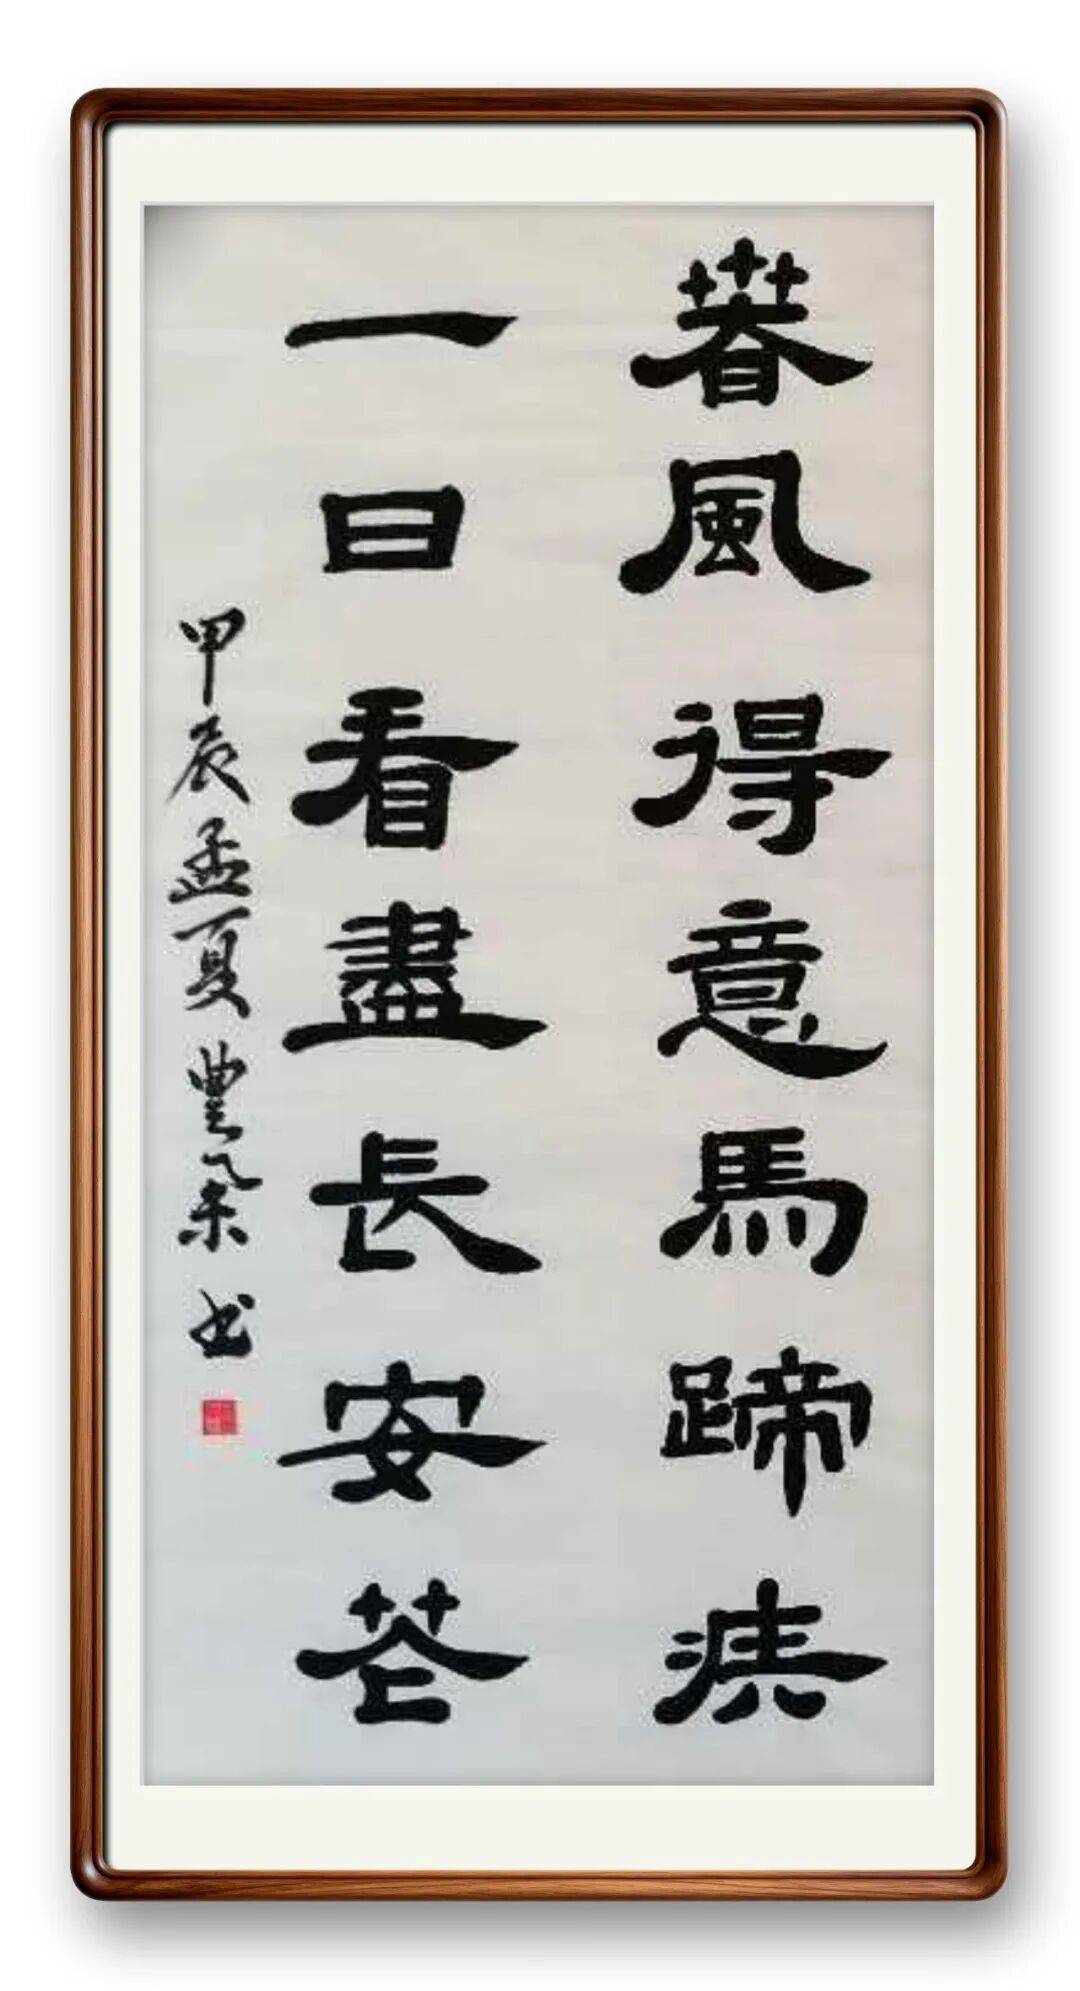 春風得意馬蹄疾
一日看盡長安花
甲辰孟夏豐泉书